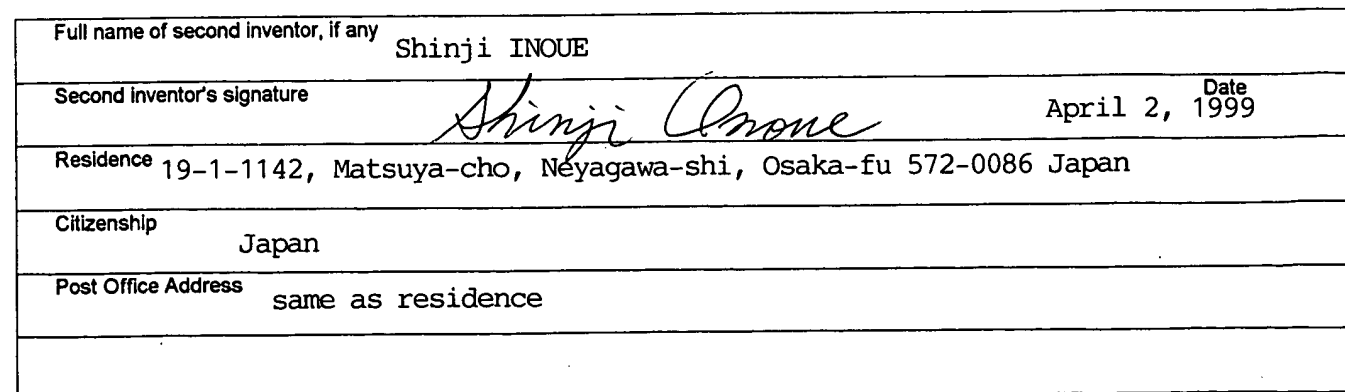 Full name of second inventor, if any Shinji INOUE
Second inventor's signature Shinji Inoue Date April 2, 1999
Residence 19-1-1142, Matsuya-cho, Neyagawa-shi, Osaka-fu 572-0086 Japan
Citizenship Japan
Post Office Address same as residence